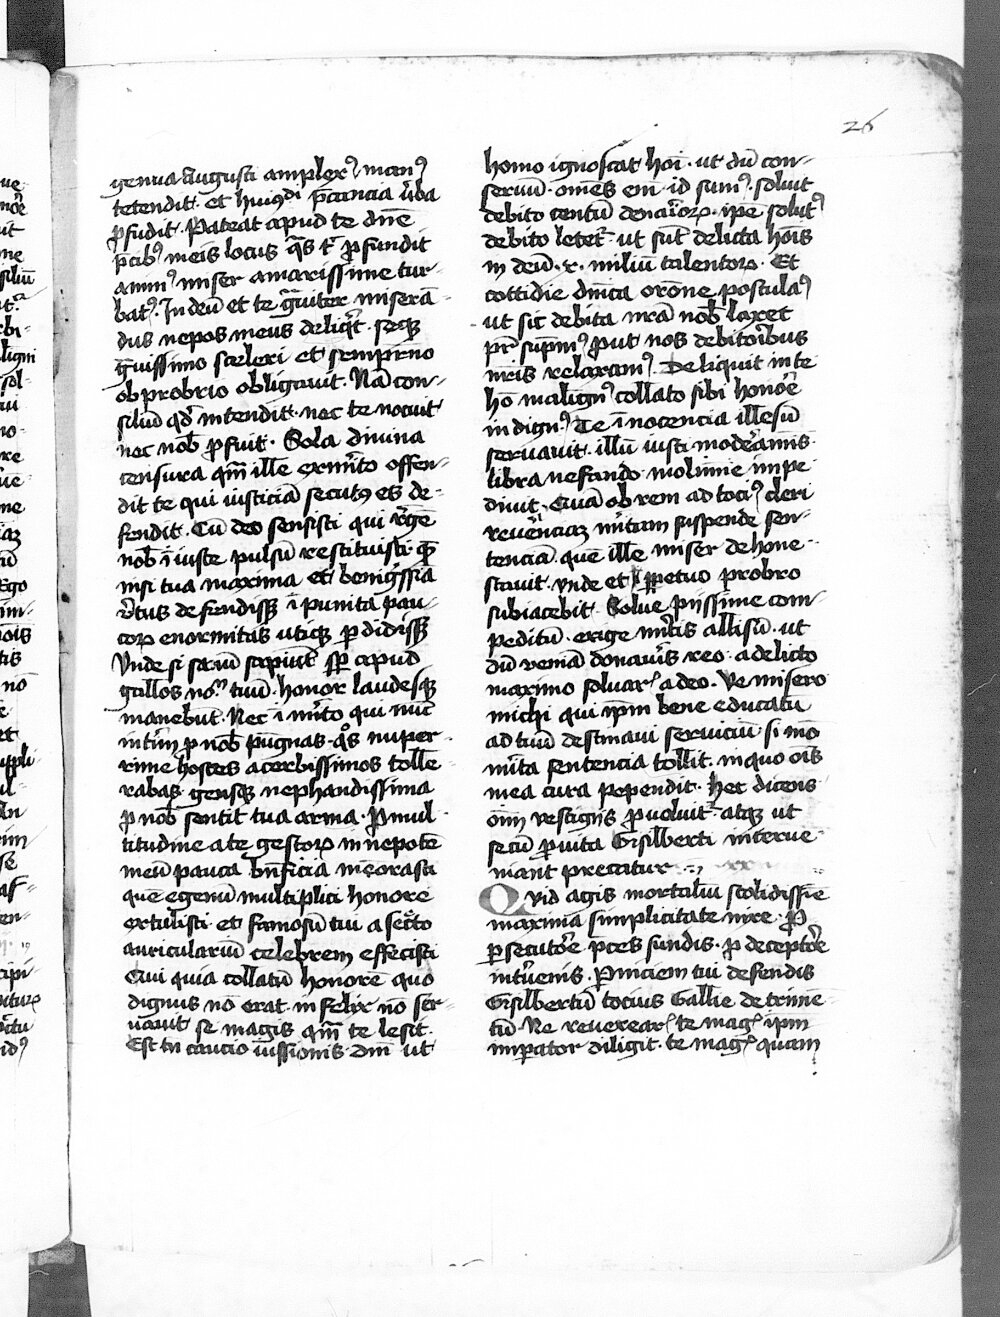 26
genua augusti amplexꝰ manꝰ
tetendit· et huiꝰmōdi p̄cancia v̄ba
ꝓfudit· Pateat apud te dn̄e
p̄cibꝰ meis locus q̄s
animꝰ miser amarissime tur-
batꝰ· In deū et te g̃uiter miserā-
dus nepos meus deliq̇t· seqꝫ
g̃uissimo sceleri et sempit̄no
obprobrio obligauit· Nā con-
siliū qd̓ intendit· nec te nocuit
nec nob̄ ꝓfuit· Sola diuina
censura qm̄ ille ex mīto offen-
dit te qui iusticiā secutꝰ es de-
fendit· Cū deo sensisti qui
nob̄ īiuste pulsū restituisti· q̄
nisi tua maxima et benig̓ssīa
v̄tus defendisꝫ īpunita pau-
coꝝ enormitas utiqꝫ ꝑdidisꝫ
Vnde si sanū sapiūt sꝑ apud
gallos nom̄ tuū· honor laudesqꝫ
manebūt· Nec īmīto qui nūc
int̓im ꝓ nob̄ pugnas· q̊s nuper-
rime hostes acerbissimos tolle-
rabas· gensqꝫ nephandissima
ꝓ nob̄ sentit tua arma· Pro mul-
titudine a te gestoꝝ in nepotē
meū pauca bn̄ficia mēorasti
quē egenū multiplici honore
extulisti et famosū tui a sec̄to
auriculariū celebrem effecisti
Cui quia collatū honorē quo
dignus nō erat· infelix nō ser-
uauit se magis qm̄ te lesit
Est tn̄ caucio iussionis dn̄i ut
homo ignoscat hoī· ut dū con-
seruū· om̄es em̄ id sumꝰ· soluit
debito centū denarioꝝ· ip̄e solutꝰ
debito letet̄· ut sūt delicta hoīs
in deū· x· miliū talentoꝝ· Et
cottidie dn̄ica orōne postulaꝰ
ut sic debita nr̄a nob̄ laxet
pr̄ supm̄ꝰ ꝓut nos debitorībus
nr̄is relaxamꝰ· Deliquit in te
hō malignꝰ collato sibi honōe
indignꝰ Te īnocencia illesū
seruauit· illū iusti modēaminis
libra nefando molimīe impe
diuit· Quā ob rem ad tociꝰ cleri
reuēnciaꝫ mītam suspende sen-
tenciā· que ille miser dehone-
stauit· vnde et ꝑpetuo probro
subiacebit· Solue piissime com-
peditū· erige mītis allisū· ut
dū veniā donaūis reo· a delicto
maximo soluarꝭ a deo· Ve misero
michi qui ip̄m bene educatū
ad tuū destinaui seruiciū· si
mīta sentencia tollit· in quo oīs
mea cura pependit· Hec dicens
om̄ vestigiis ꝓuoluit· atqꝫ ut
secū ꝓ uita Gisilberti interue-
niant precatur
Quid agis mortaliū stolidissīe
maximā simplicitate mire· ꝓ
ꝑsecutōe p̄ces fundis· ꝓ deceptōe
int̓uenis· ꝑniciem tui defendis
Gisilbertū tocius Gallie detrimē-
tū Ne reuerearꝭ te magꝭ ip̄m
imꝑator diligit· te magꝭ quam